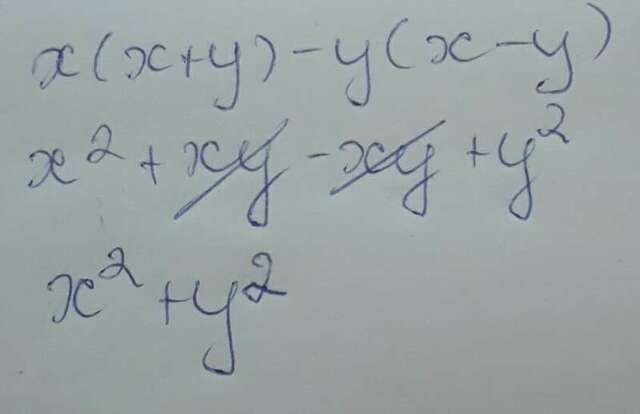 x(x+y)-y(x-y)
x²+xy-xy+y²
x²+y²